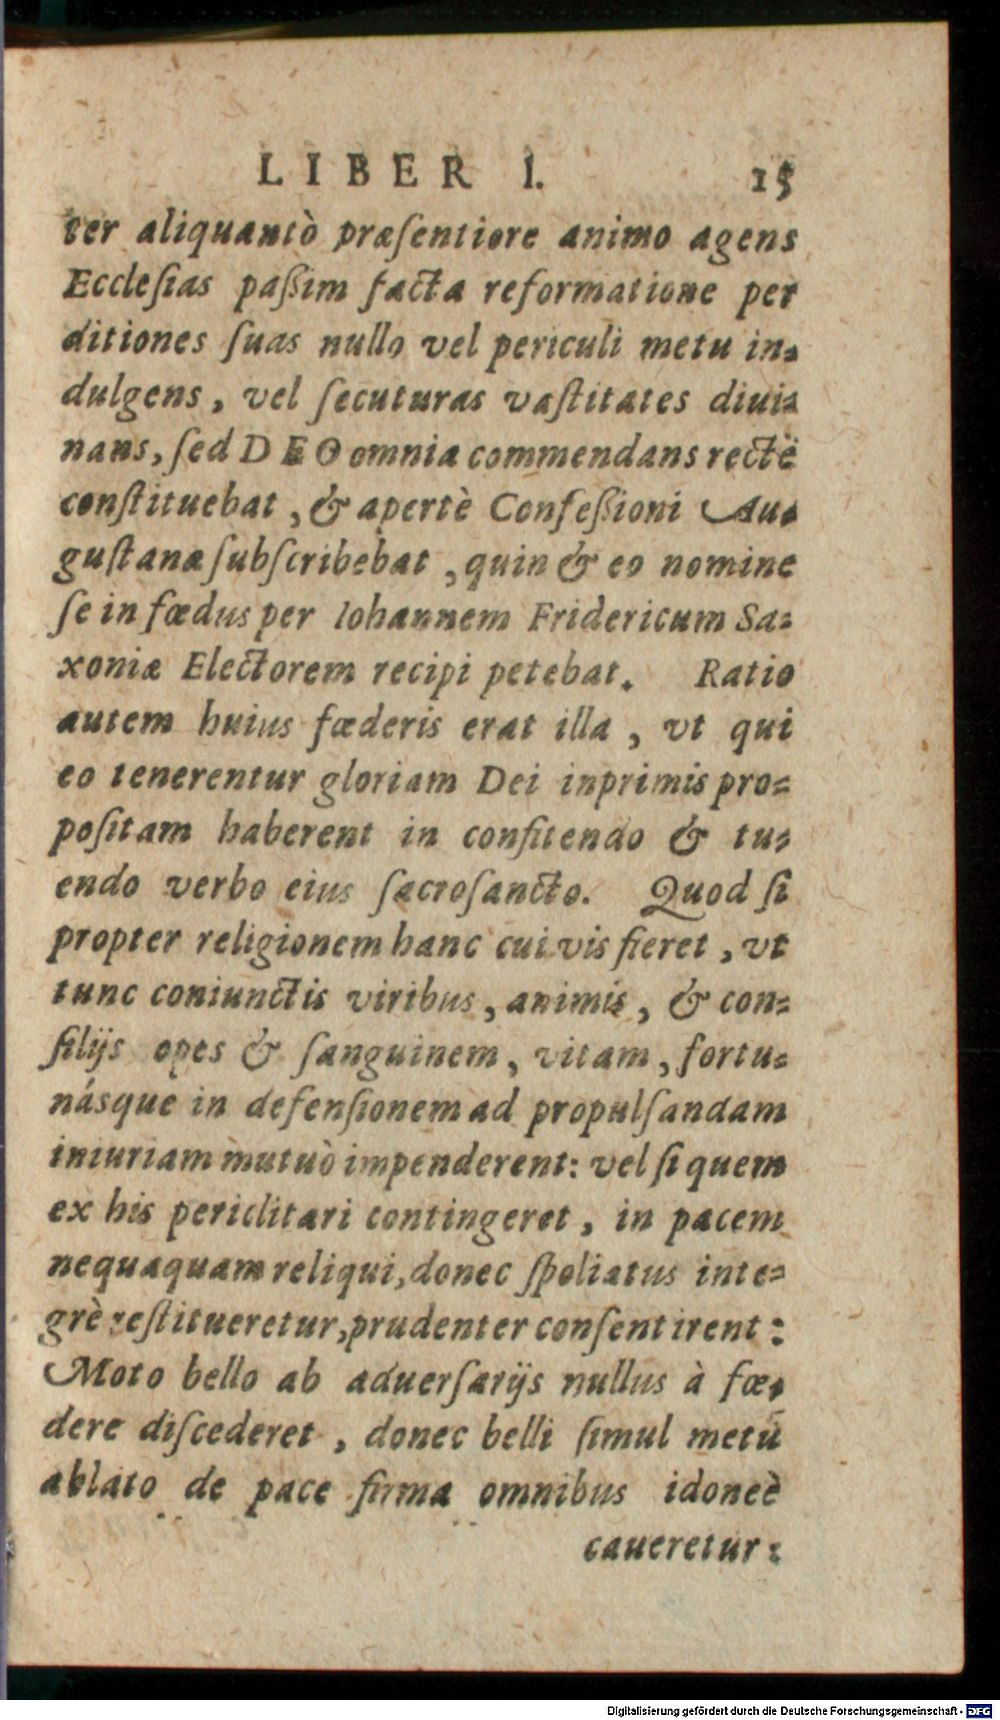 LIBER I. 15
ter aliquantò præſentiore animo agens
Eccleſias paßim facta reformatione per
ditiones ſuas nullo vel periculi metu in-
dulgens, vel ſecuturas vaſtitates diui-
nans, ſed DEO omnia commendans rectè
conſtituebat, & apertè Confeßioni Au-
guſtanæ ſubſcribebat, quin & eo nomine
ſe in fœdus per Iohannem Fridericum Sa-
xoniæ Electorem recipi petebat. Ratio
autem huius fœderis erat illa, vt qui
eo tenerentur gloriam Dei inprimis pro-
poſitam haberent in confitendo & tu-
endo verbo eius ſacroſancto. Quod ſi
propter religionem hanc cui vis fieret, vt
tunc coniunctis viribus, animis, & con-
ſilijs opes & ſanguinem, vitam, fortu-
násque in defenſionem ad propulſandam
iniuriam mutuò impenderent: vel ſi quem
ex his periclitari contingeret, in pacem
nequaquam reliqui, donec ſpoliatus inte-
grè reſtitueretur, prudenter conſentirent:
Moto bello ab aduerſarijs nullus à fœ-
dere diſcederet, donec belli ſimul metu
ablato de pace firma omnibus idoneè
caueretur:
Digitalisierung gefördert durch die Deutsche Forschungsgemeinschaft - DFG